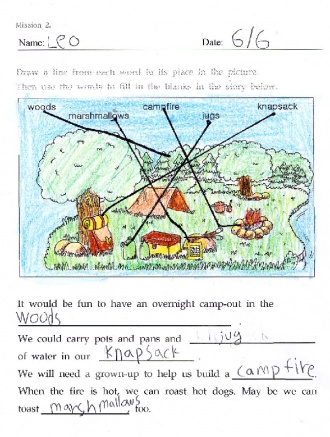 Mission 2.
Name: Leo Date: 6/6
Draw a line from each word to its place in the picture.
Then use the words to fill in the blanks in the story below.
woods marshmallows campfire jugs knapsack
It would be fun to have an overnight camp-out in the
woods
We could carry pots and pans and jug
of water in our knapsack.
We will need a grown-up to help us build a campfire.
When the fire is hot, we can roast hot dogs. May be we can
toast marshmallows too.